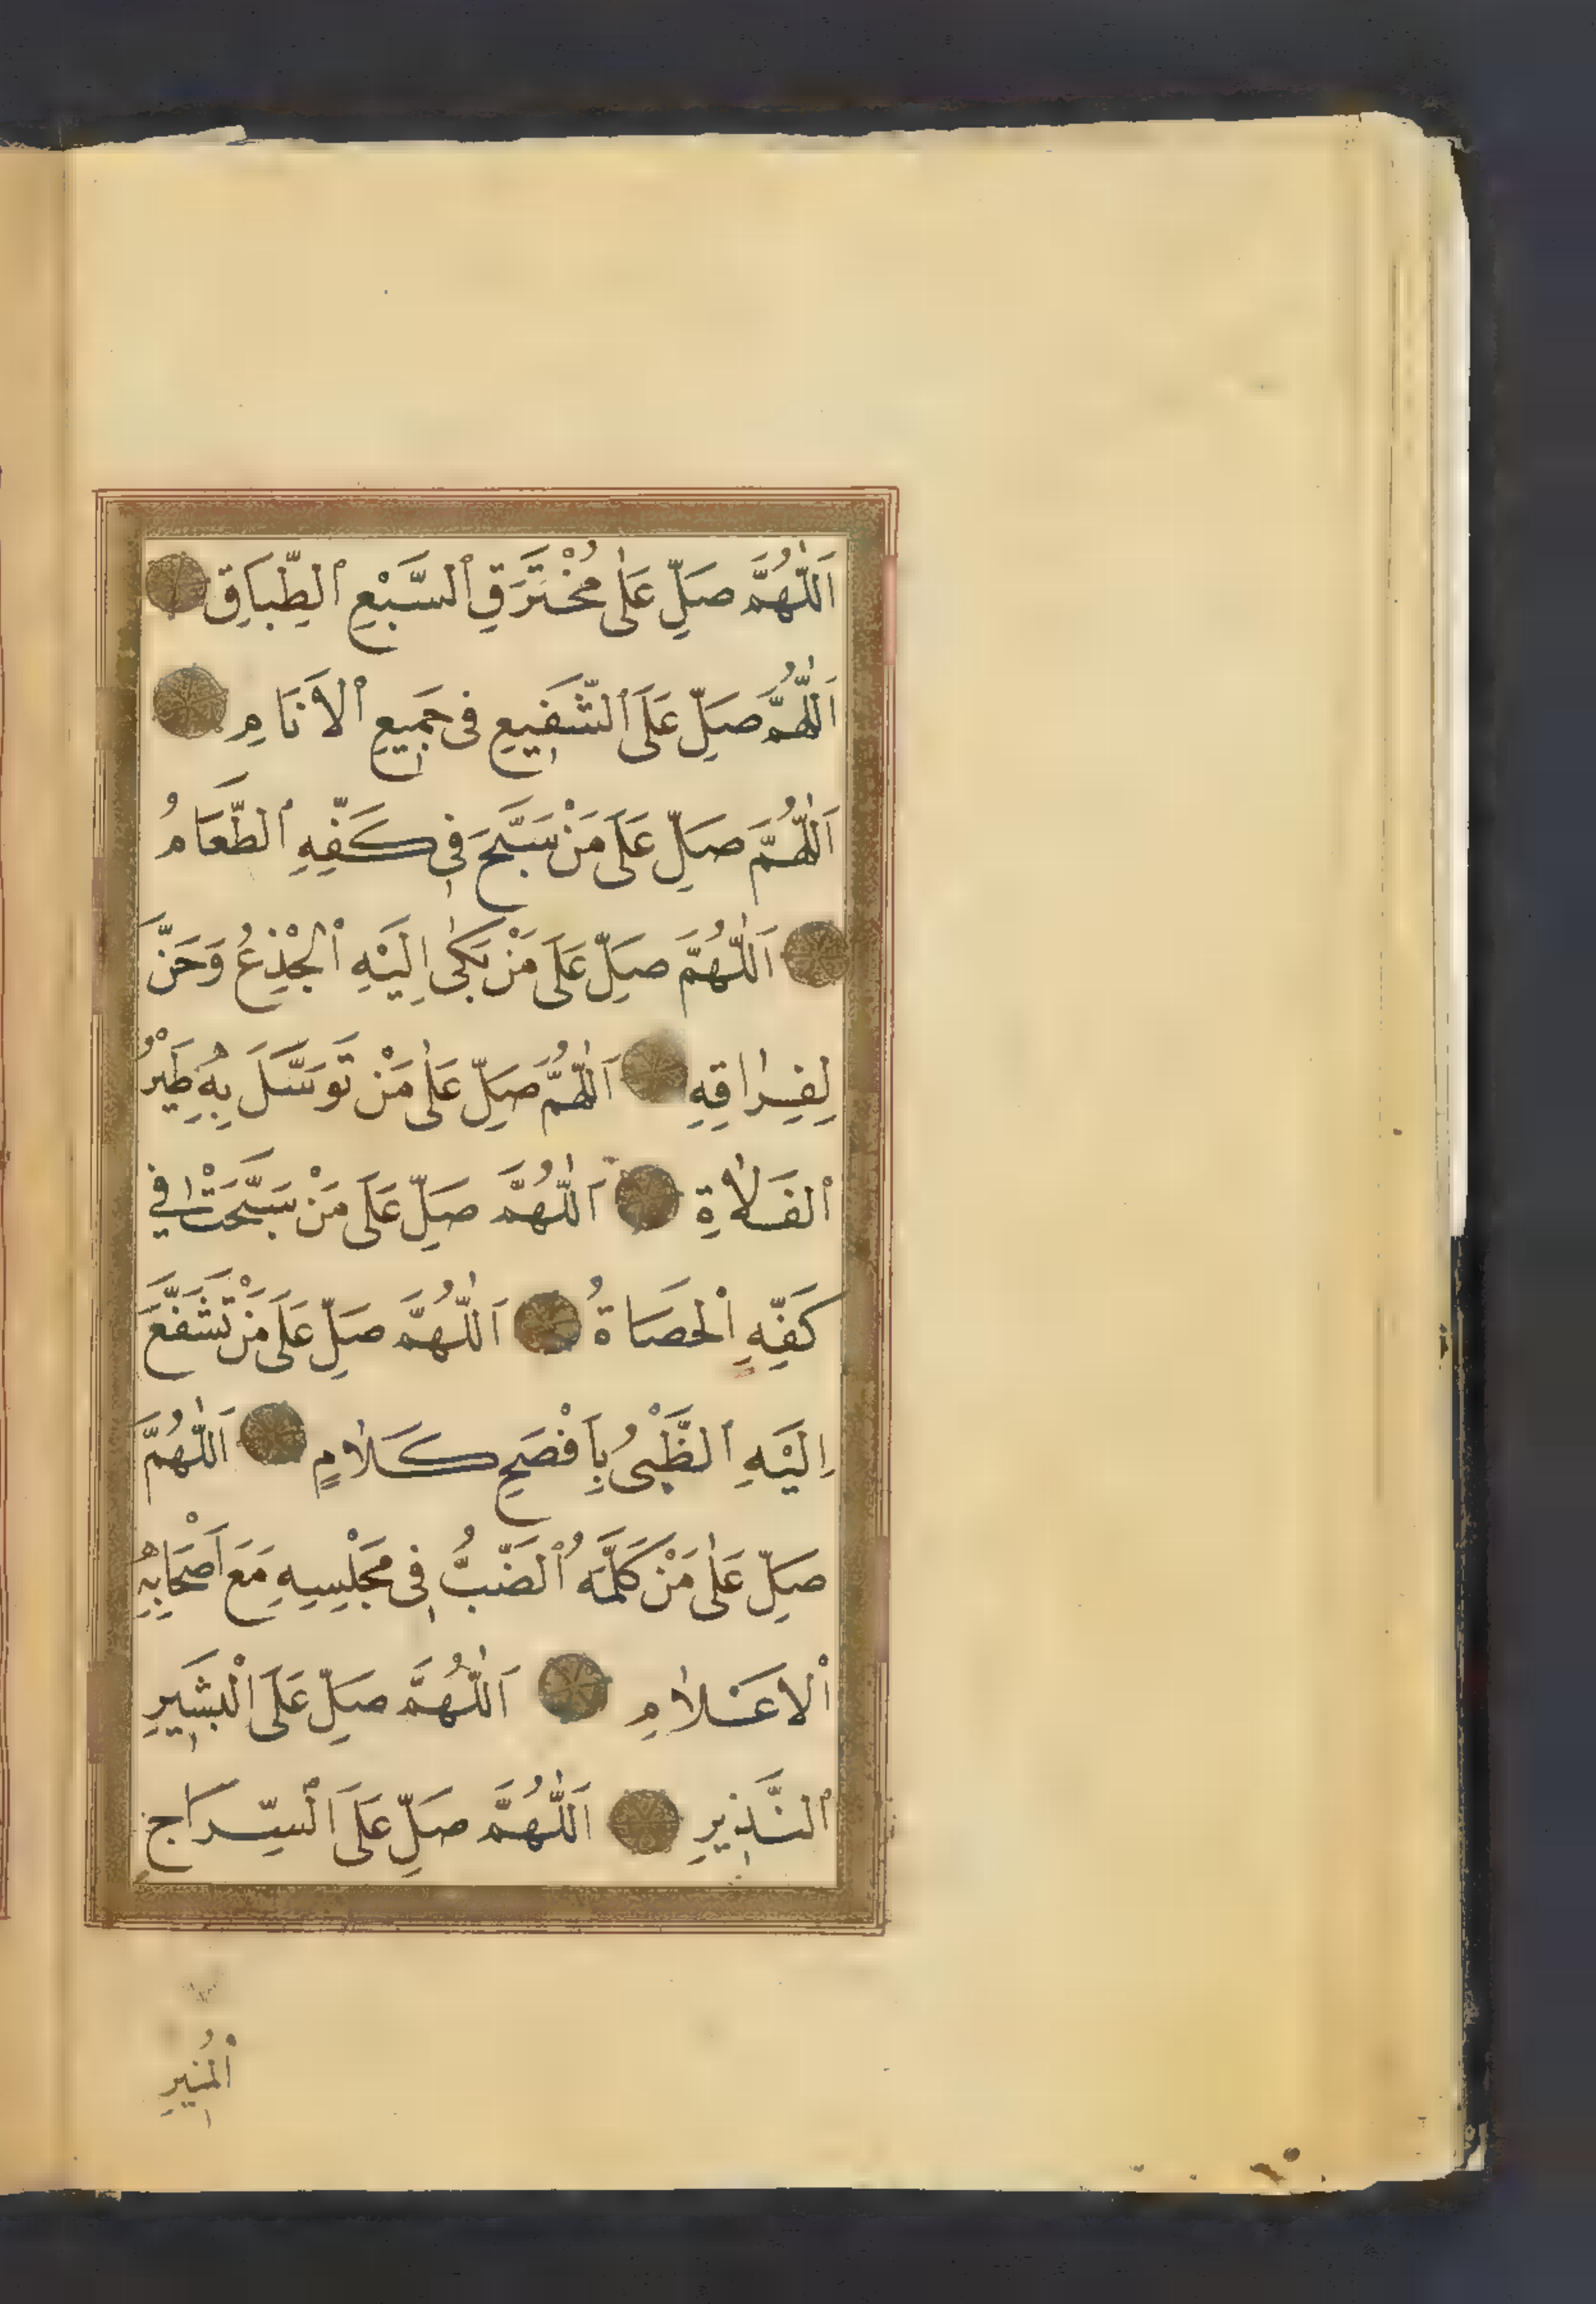 اَللّٰهُمَّ صَلِّ عَلٰى مُخْتَرَقِ ٱلسَّبْعِ ٱلطِّبَاقِ
اَللّٰهُمَّ صَلِّ عَلَى ٱلشَّفِيعِ فِى جَمِيعِ ٱلاَنَامِ
اَللّٰهُمَّ صَلِّ عَلَى مَنْ سَبَّحَ فِى كَفِّهِ ٱلطَّعَامُ
اَللّٰهُمَّ صَلِّ عَلَى مَنْ بَكٰى اِلَيْهِ ٱلْجِذْعُ وَحَنَّ
لِفِرَاقِهِ اَللّٰهُمَّ صَلِّ عَلٰى مَنْ تَوَسَّلَ بِهِ طَيْرُ
ٱلفَلَاةِ اَللّٰهُمَّ صَلِّ عَلَى مَنْ سَبَّحَتْ فِي
كَفِّهِ ٱلْحَصَاةُ اَللّٰهُمَّ صَلِّ عَلَى مَنْ تَشَفَّعَ
اِلَيْهِ ٱلظَّبْىُ بِاَفْصَحِ كَلَامٍ اَللّٰهُمَّ
صَلِّ عَلٰى مَنْ كَلَّمَهُ ٱلضَّبُّ فِى مَجْلِسِهِ مَعَ اَصْحَابِهِ
ٱلْاَعْلَامِ اَللّٰهُمَّ صَلِّ عَلَى ٱلْبَشِيرِ
ٱلنَّذِيرِ اَللّٰهُمَّ صَلِّ عَلَى ٱلسِّرَاجِ
ٱلْمُنِيرِ